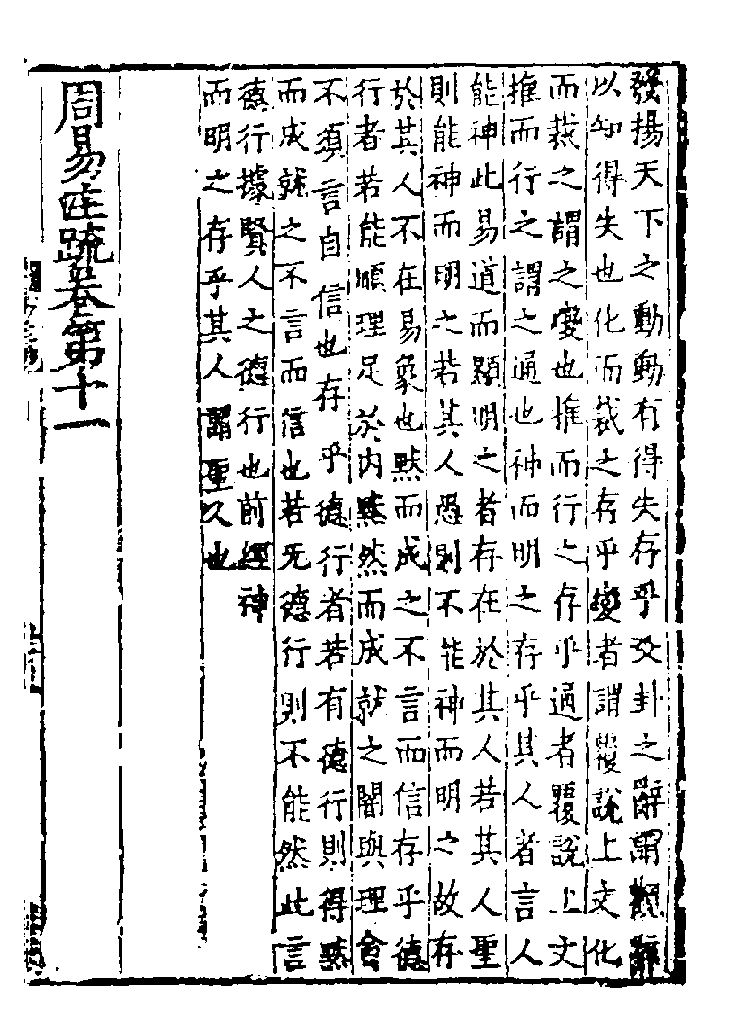 發揚天下之動動有得失存乎爻卦之辭謂觀辭
以知得失也化而裁之存乎變者謂覆說上文化
而裁之謂之變也推而行之存乎通者覆說上文
推而行之謂之通也神而明之存乎其人者言人
能神此易道而顯明之者存在於其人若其人聖
則能神而明之若其人愚則不能神而明之故存
於其人不在易象也黙而成之不言而信存乎德
行者若能順理足於内黙然而成就之闇與理會
不須言自信也存乎德行者若有德行則得黙
而成就之不言而信也若无德行則不能然此言
德行據賢人之德行也前經神
而明之存乎其人謂聖久也
周易注疏卷第十一